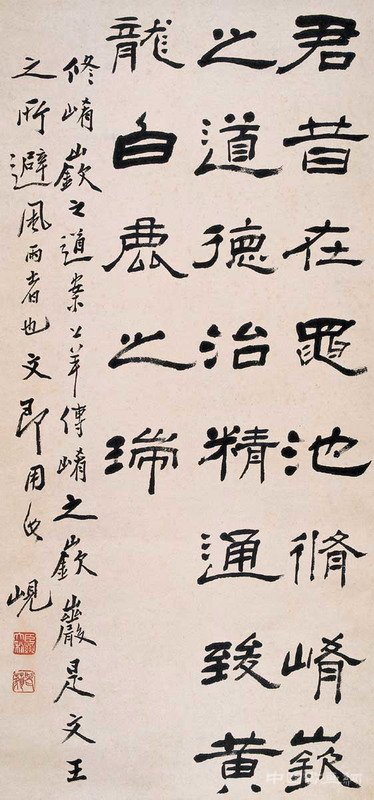 君昔在黽池脩崤嶔
之道德治精通致黃
龍白鹿之瑞
修崤嶔之道案公羊傳崤之嶔巖是文王
之所避風雨者也文即用此峴